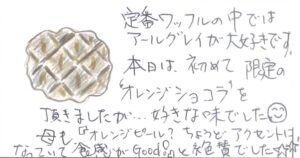 定番ワッフルの中では
アールグレイが大好きです。
本日は、初めて限定の
"オレンジショコラ"を
頂きましたが…好きな味でした
母も『オレンジピール?ちょっとアクセントに
なっていて食感がGood!』と絶賛でした